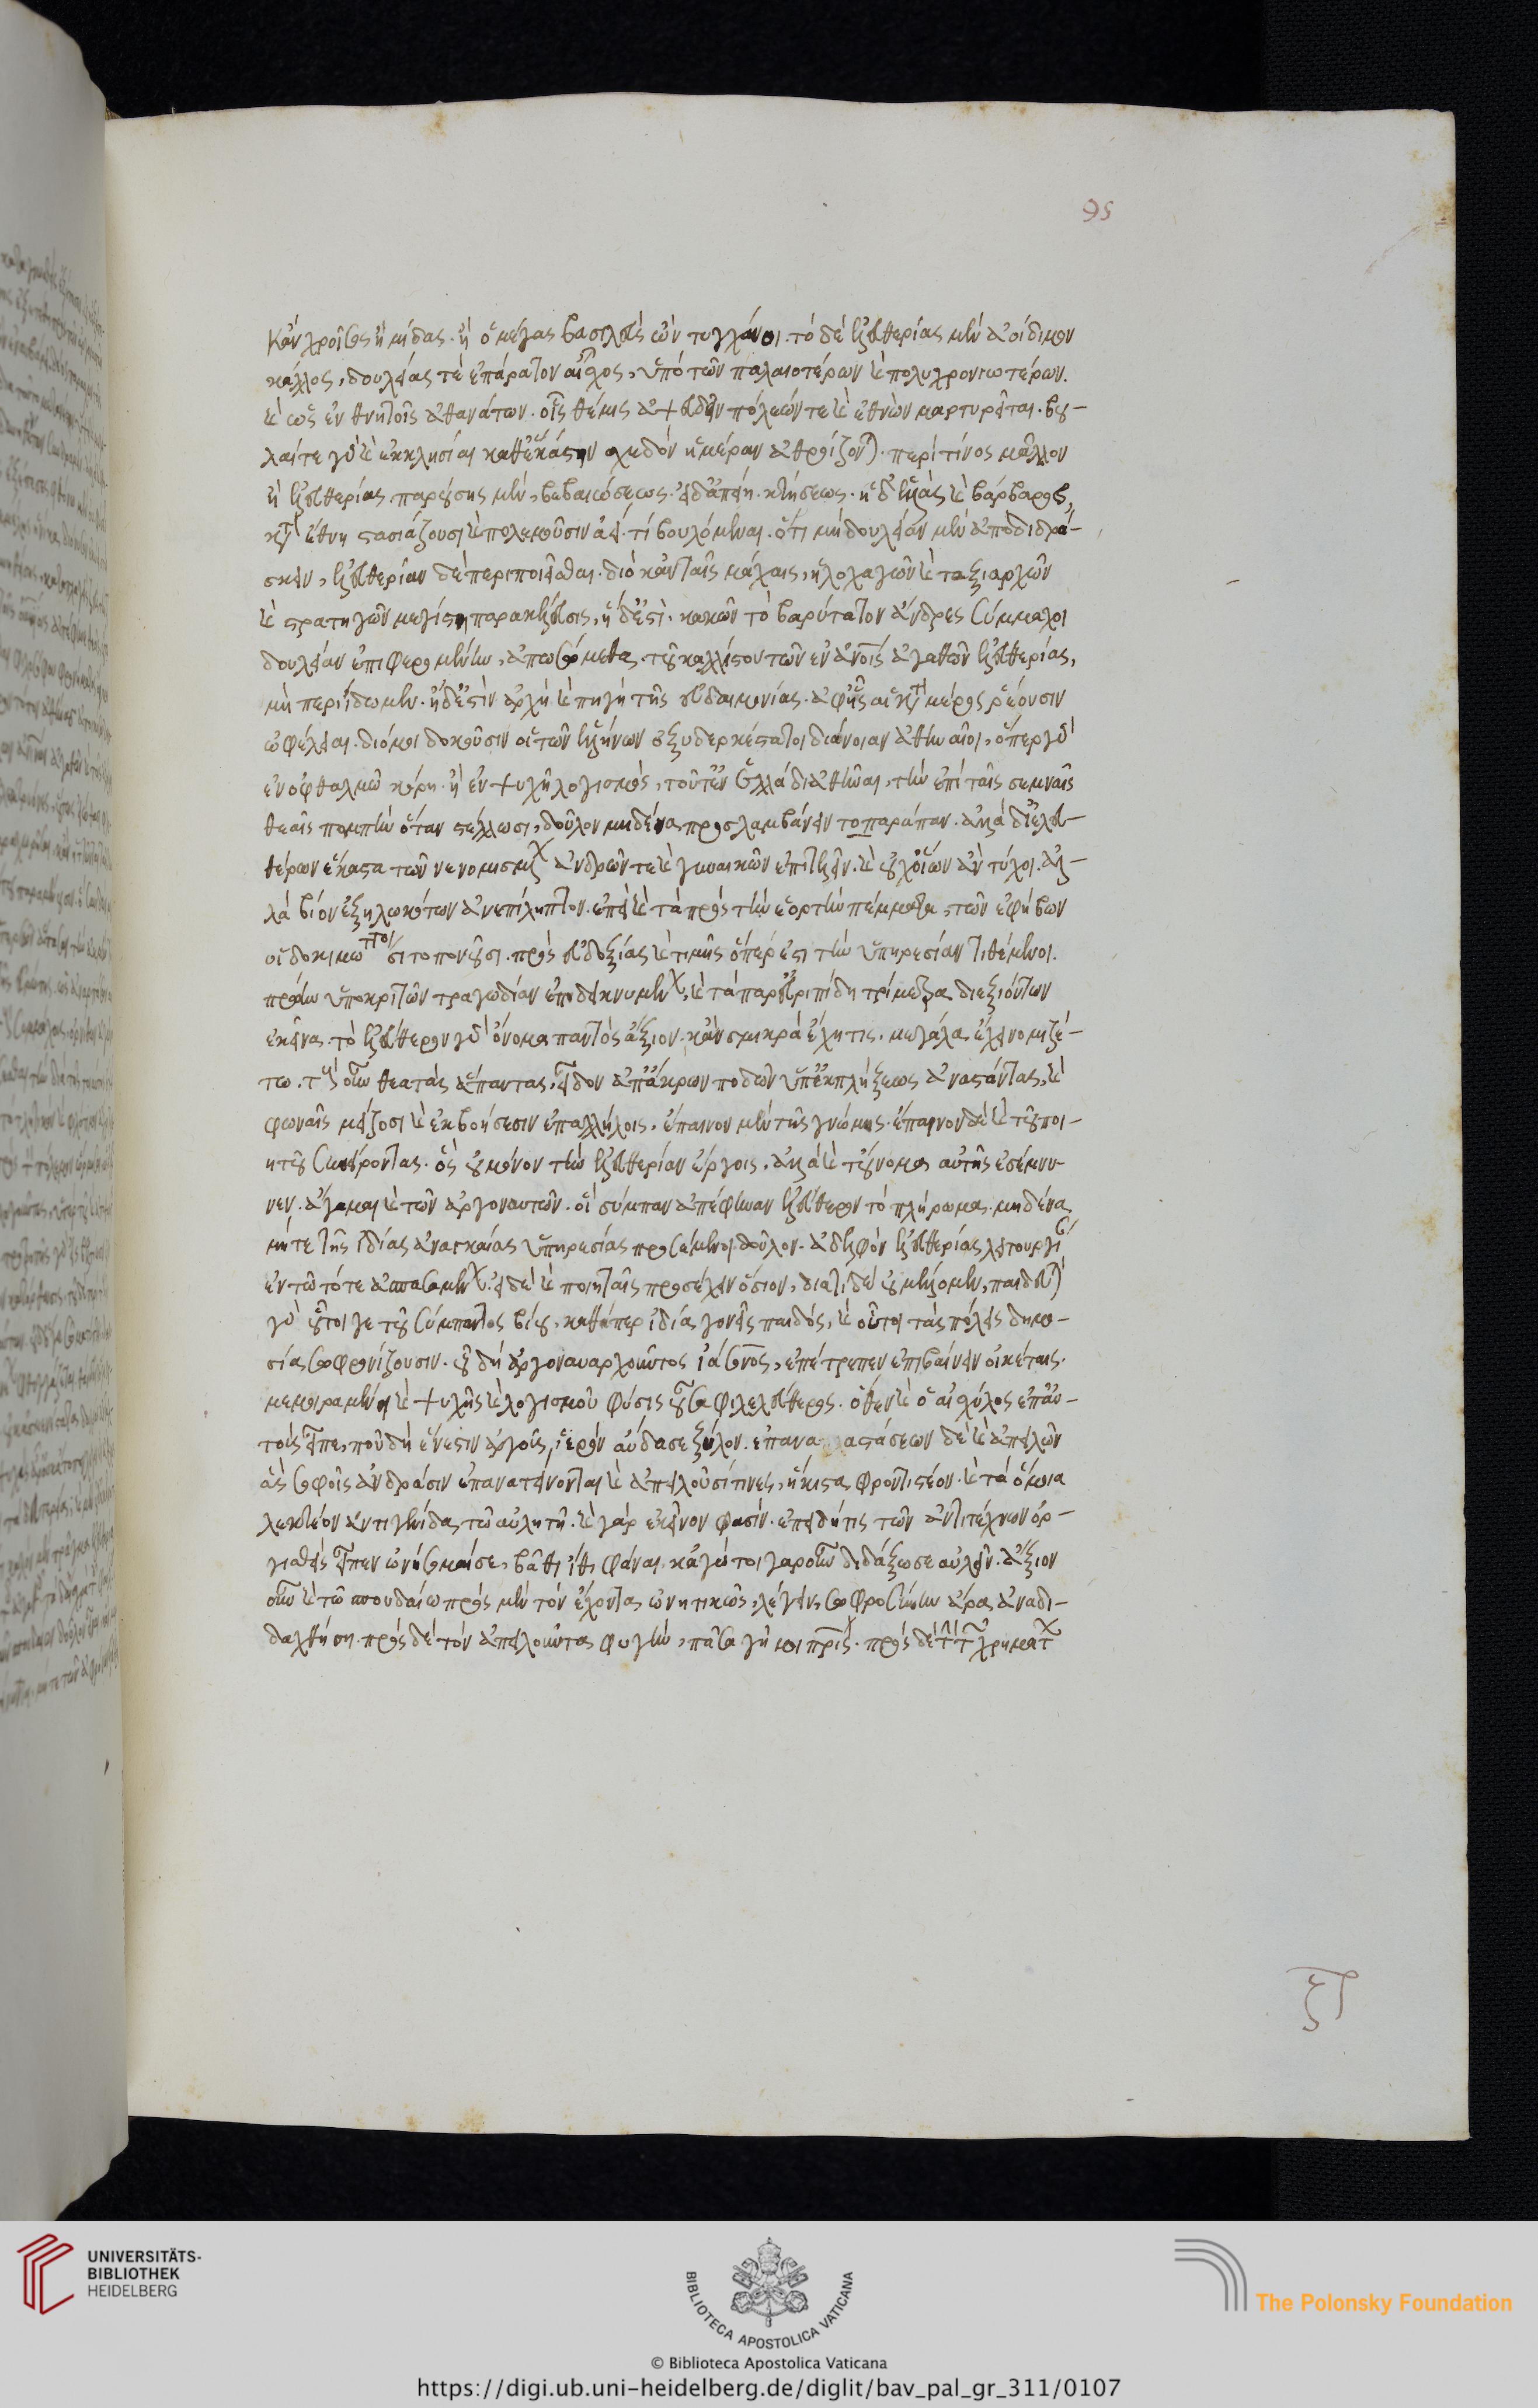 κἂν χροῖσος ἢ μίδας· ἢ ὁ μέγας βασιλεὺς ὢν τυγχάνοι. τὸ δὲ ἐλευθερίας μὲν ἀοίδιμον
κάλλος, δουλείας τὲ ἐπάρατον αἶσχος, ὑπὸ τῶν παλαιοτέρων καὶ πολυχρονιωτέρων.
καὶ ὡς ἐν θνητοῖς ἀθανάτων. οἷς θέμις ἀψευδεῖν πόλεών τε καὶ ἐθνῶν μαρτυρεῖται. βου-
λαί τε γὰρ καὶ ἐκκλησίαι καθεκάστην σχεδὸν ἡμέραν ἀθροίζονται. περί τινος μᾶλλον
ἢ ἐλευθερίας παρούσης μὲν, βεβαιώσεως· εἰ δ' ἀπείη. κτήσεως. ἡ δ' ἑλλὰς καὶ βάρβαρος,
κατὰ ἔθνη στασιάζουσι καὶ πολεμοῦσιν ἀεί. τί βουλόμεναι. ὅτι μὴ δουλείαν μὲν ἀποδιδρά-
σκειν, ἐλευθερίαν δὲ περιποιεῖσθαι. διὸ κἀν ταῖς μάχαις, ἡ λοχαγῶν καὶ ταξιαρχῶν
καὶ στρατηγῶν μεγίστη παρακέλευσις, ἥδ' ἐστὶ. κακῶν τὸ βαρύτατον ἄνδρες σύμμαχοι
δουλείαν ἐπιφερομένην, ἀπωσόμεθα. τοῦ καλλίστου τῶν ἐν ἀνοις ἀγαθῶν ἐλευθερίας,
μὴ περιίδωμεν. ἥδ' ἐστὶν ἀρχὴ καὶ πηγὴ τῆς εὐδαιμονίας. ἀφ' ἧς αἱ κατὰ μέρος ῥέουσιν
ὠφέλειαι. διό μοι δοκοῦσιν οἱ τῶν ἑλλήνων ὀξυδερκέστατοι διάνοιαν ἀθηναῖοι, ὅπερ γὰρ
ἐν ὀφθαλμῷ κόρη. ἢ ἐν ψυχῇ λογισμός, τοῦτ' ἐν ἑλλάδι ἀθῆναι, τὴν ἐπὶ ταῖς σεμναῖς
θεαῖς πομπὴν ὅταν στέλλωσι, δοῦλον μηδένα προσλαμβάνειν τοπαράπαν. ἀλλὰ δι' ἐλευ-
θέρων ἕκαστα τῶν νενομισμένων ἀνδρῶν τε καὶ γυναικῶν ἐπιτελεῖν. καὶ οὐχ' οἵων ἂν τύχοι. ἀλ-
λὰ βίον ἐξηλωκότων ἀνεπίληπτον. ἐπεὶ καὶ τὰ πρὸς τὴν ἑορτὴν πέμματα, τῶν ἐφήβων
οἱ δοκιμώτατοι σιτοπονοῦσι. πρὸς εὐδοξίας καὶ τιμῆς ὅπερ ἐστὶ τὴν ὑπηρεσίαν τιθέμενοι.
πρώην ὑποκριτῶν τραγωδίαν ἐπιδεικνυμένων, καὶ τὰ παρ' εὐριπίδη τρίμετρα διεξιόντων
ἐκεῖνα. τὸ ἐλεύθερον γὰρ ὄνομα παντὸς ἄξιον. κἂν σμικρὰ ἔχη τις, μεγάλα ἔχειν νομιζέ-
τω. τοὺς οὖν θεατὰς ἅπαντας, εἶδον ἀπ' ἄκρων ποδῶν ὑπ' ἐκπλήξεως ἀναστάντας, καὶ
φωναῖς μείζοσι καὶ ἐκβοήσεσιν ἐπαλλήλοις, ἔπαινον μὲν τῆς γνώμης. ἔπαινον δὲ καὶ τοῦ ποι-
ητοῦ συνείροντας. ὃς οὐ μόνον τὴν ἐλευθερίαν ἔργοις, ἀλλὰ καὶ τοὔνομα αὐτῆς ἐσέμνυ-
νεν. ἄγαμαι καὶ τῶν ἀργοναυτῶν. οἳ σύμπαν ἀπέφηναν ἐλεύθερον τὸ πλήρωμα. μηδένα
μήτε τῆς ἰδίας ἀναγκαίας ὑπηρεσίας προσέμενοι δοῦλον. ἀδελφὸν ἐλευθερίας λειτουργίας
ἐν τῶ τότε ἀσπασαμένων. εἰ δὲ καὶ ποιηταῖς προσέχειν ὅσιον, διατί δὲ οὐ μέλλομεν, παιδευταὶ
γὰρ οὗτοί γε τοῦ σύμπαντος βίου, καθάπερ ἰδία γονεῖς παιδός, καὶ οὗτοι τὰς πόλεις δημο-
σία σωφρονίζουσιν. οὐδ' ἡ ἀργοναυαρχοῦντος ἰάσονος, ἐπέτρεπεν ἐπιβαίνειν οἰκέταις.
μεμοιραμένη καὶ ψυχῆς καὶ λογισμοῦ φύσις οὖσα φιλελεύθερος. ὅθεν καὶ ὁ αἰσχύλος ἐπ' αὐ-
τοῖς εἶπε, ποῦ δ' ἡ ἔνεστιν ἀργοῦς, ἱερὸν αὔδασε ξύλον. ἐπαναστάσεων δὲ καὶ ἀπειλῶν
ἃς σοφοῖς ἀνδράσιν ἐπανατείνονται καὶ ἀπειλοῦσί τινες, ἥκιστα φροντιστέον. καὶ τὰ ὅμοια
λεκτέον ἀντιγενίδα, τῶ αὐλητῆ. καὶ γὰρ ἐκεῖνον φασίν. ἐπειδή τις τῶν ἀντιτέχνων ὀρ-
γισθεὶς εἶπεν ὠνήσομαί σε, βάθει ἤθει φάναι. κἀγὼ τοιγαροῦν διδάξω σε αὐλεῖν. ἄξιον
οὖν καὶ τῶ σπουδαίω πρὸς μὲν τὸν ἔχοντα ὠνητικῶς, λέγειν, σωφροσύνην ἄρα ἀναδι-
δαχθήση. πρὸς δὲ τὸν ἀπειλοῦντα φυγὴν, πᾶσα γῆ μοι πρίς. πρὸς δὲ τὸν τῶν χρημάτων